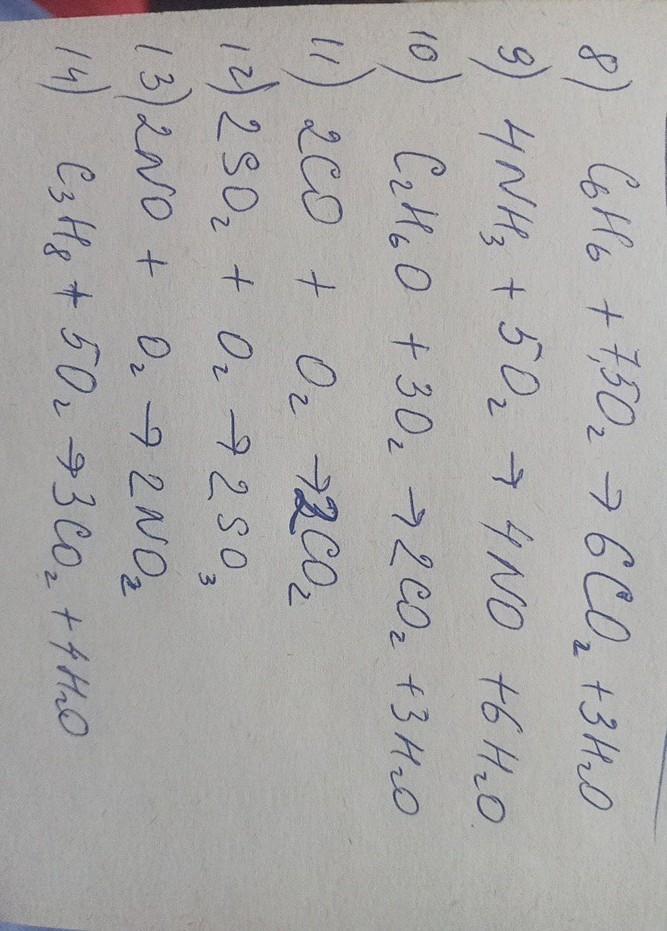 8) C₆H₆ + 7,5O₂ → 6CO₂ + 3H₂O
9) 4NH₃ + 5O₂ → 4NO + 6H₂O
10) C₂H₆O + 3O₂ → 2CO₂ + 3H₂O
11) 2CO + O₂ → 2CO₂
12) 2SO₂ + O₂ → 2SO₃
13) 2NO + O₂ → 2NO₂
14) C₃H₈ + 5O₂ → 3CO₂ + 4H₂O